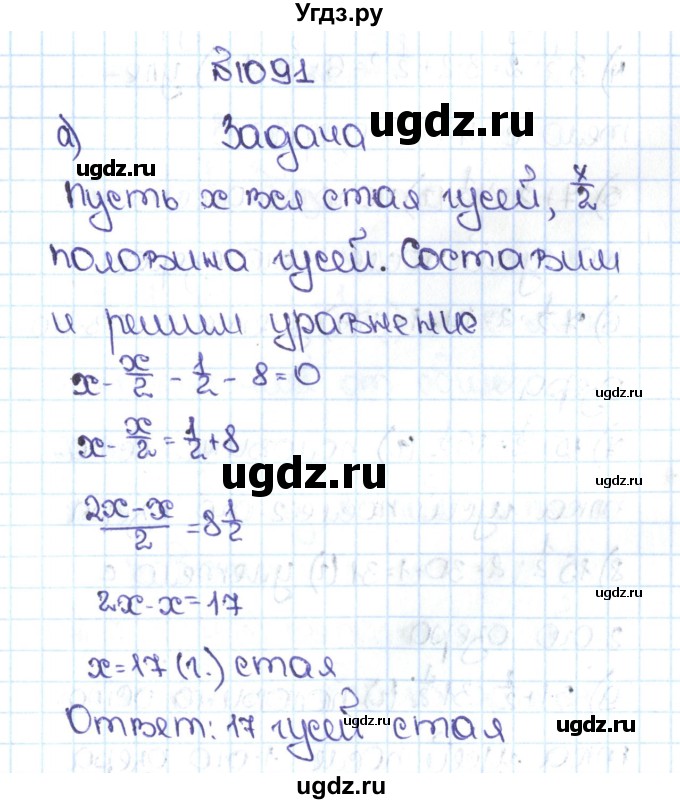 Угдз.ру
№1091
а) Задача ugdz.ru
ugdz.ru
Пусть x вся стая гусей, x/2
половина гусей. Составим
и решим уравнение
x - x/2 - 1/2 - 8 = 0
ugdz.ru
x - x/2 = 1/2 + 8
ugdz.ru
(2x-x)/2 = 8 1/2
2x - x = 17
ugdz.ru
x = 17 (г.) стая
Ответ: 17 гусей стая
ugdz.ru ugdz.ru
ugdz.ru ugdz.ru